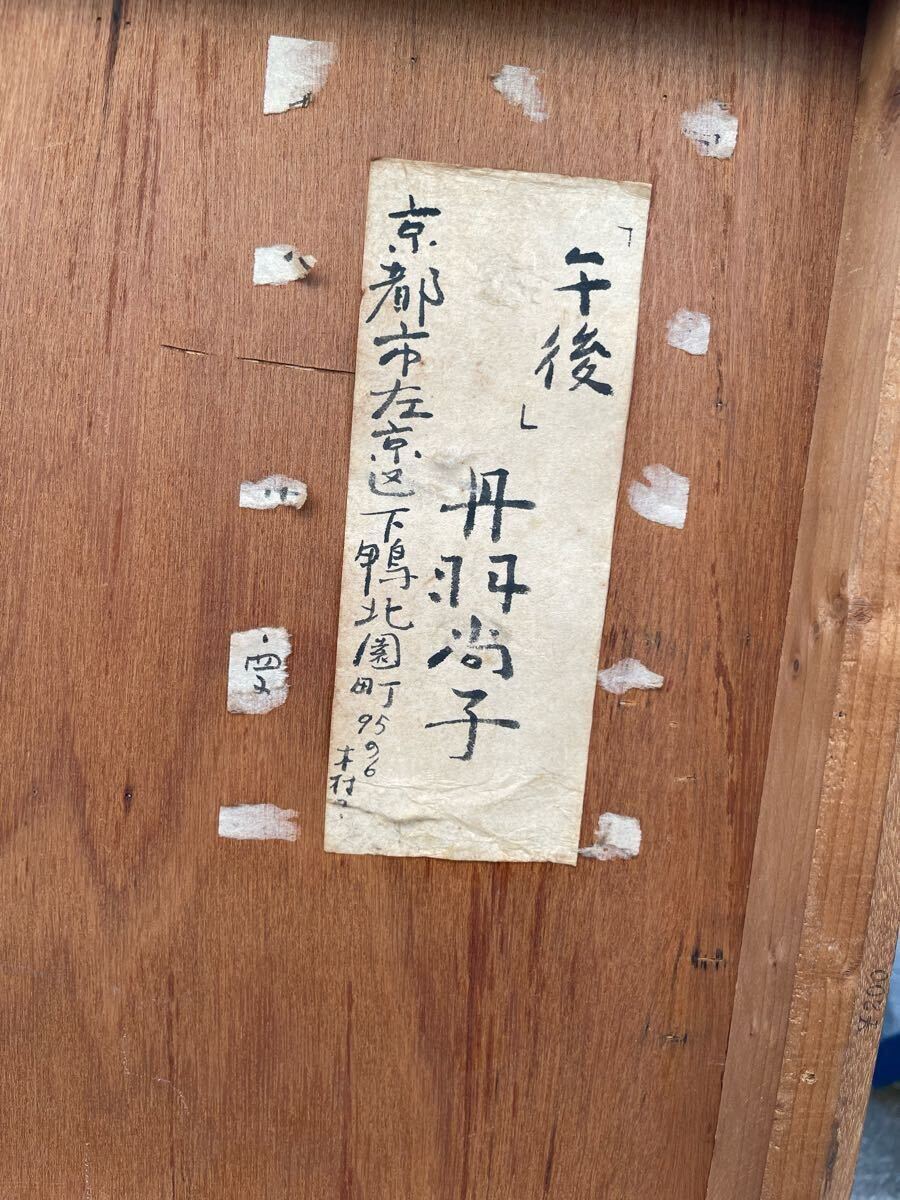 「午後」
丹羽尚子
京都市左京区下鴨北園町95の6
木村
¥800